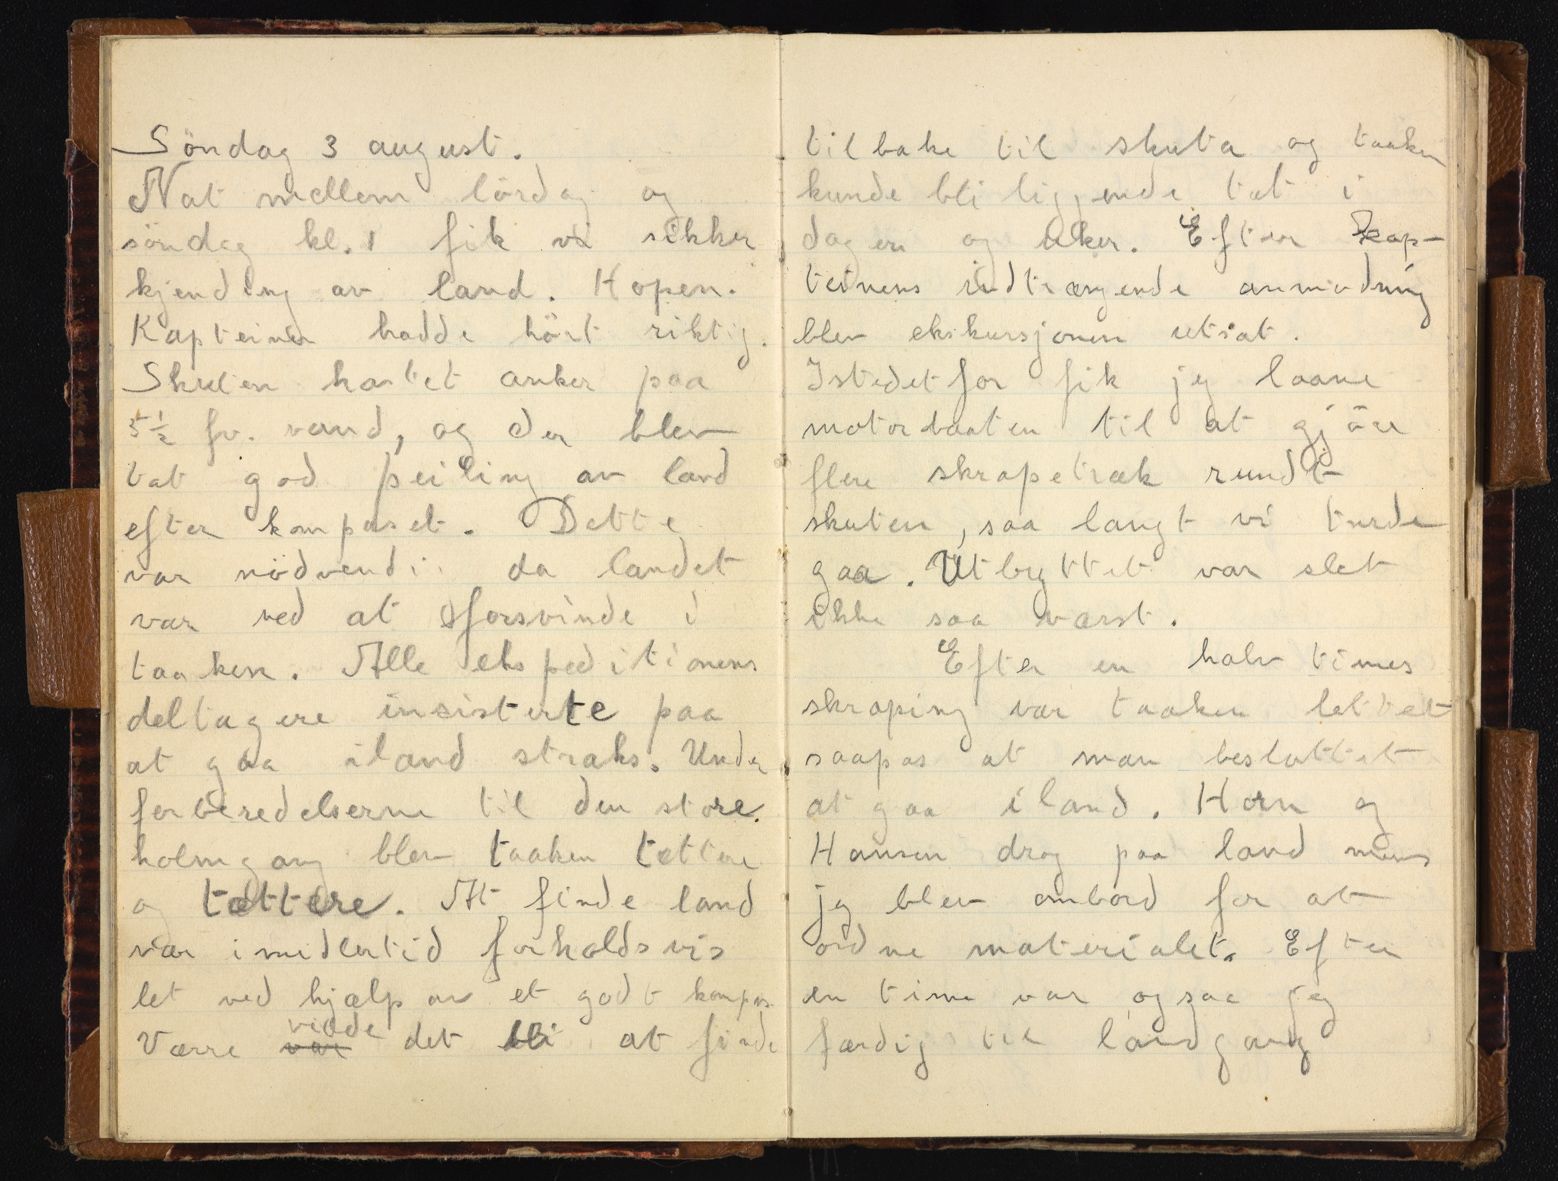 Söndag 3 august.
Nat mellem lördag og
söndag kl. 1 fik vi sikker
kjending av land. Kopen.
Kapteinen hadde hört riktig.
Skuten kastet anker paa
5½ fv. vand, og der blev
tat god peiling av land
efter kompaset. Dette
var nödvendi. da landet
var ved at forsvinde i
taaken. Alle ekspeditionens
deltagere insisterte paa
at gaa iland straks. Under
forberedelserne til den store
holmgang blev taaken tættere
og tættere. At finde land
var imidlertid forholdsvis
let ved hjælp av et godt kompas.
Værre var vilde det bli at finde
tilbake til skuta og taaken
kunde bli liggende tæt i
dager og uker. Efter kap-
teinens indtrængende anmodning
blev ekskursjonen utsat.
Istedetfor fik jeg laane
motorbaaten til at gjöre
flere skrapetræk rundt
skuten, saa langt vi turde
gaa. Utbyttet var slet
ikke saa værst.
Efter en halv times
skraping var taaken lettet
saapas at man besluttet
at gaa iland. Horn og
Hansen drog paa land mens
jeg blev ombord for at
ordne materialet. Efter
en time var ogsaa jeg
færdig til landgang